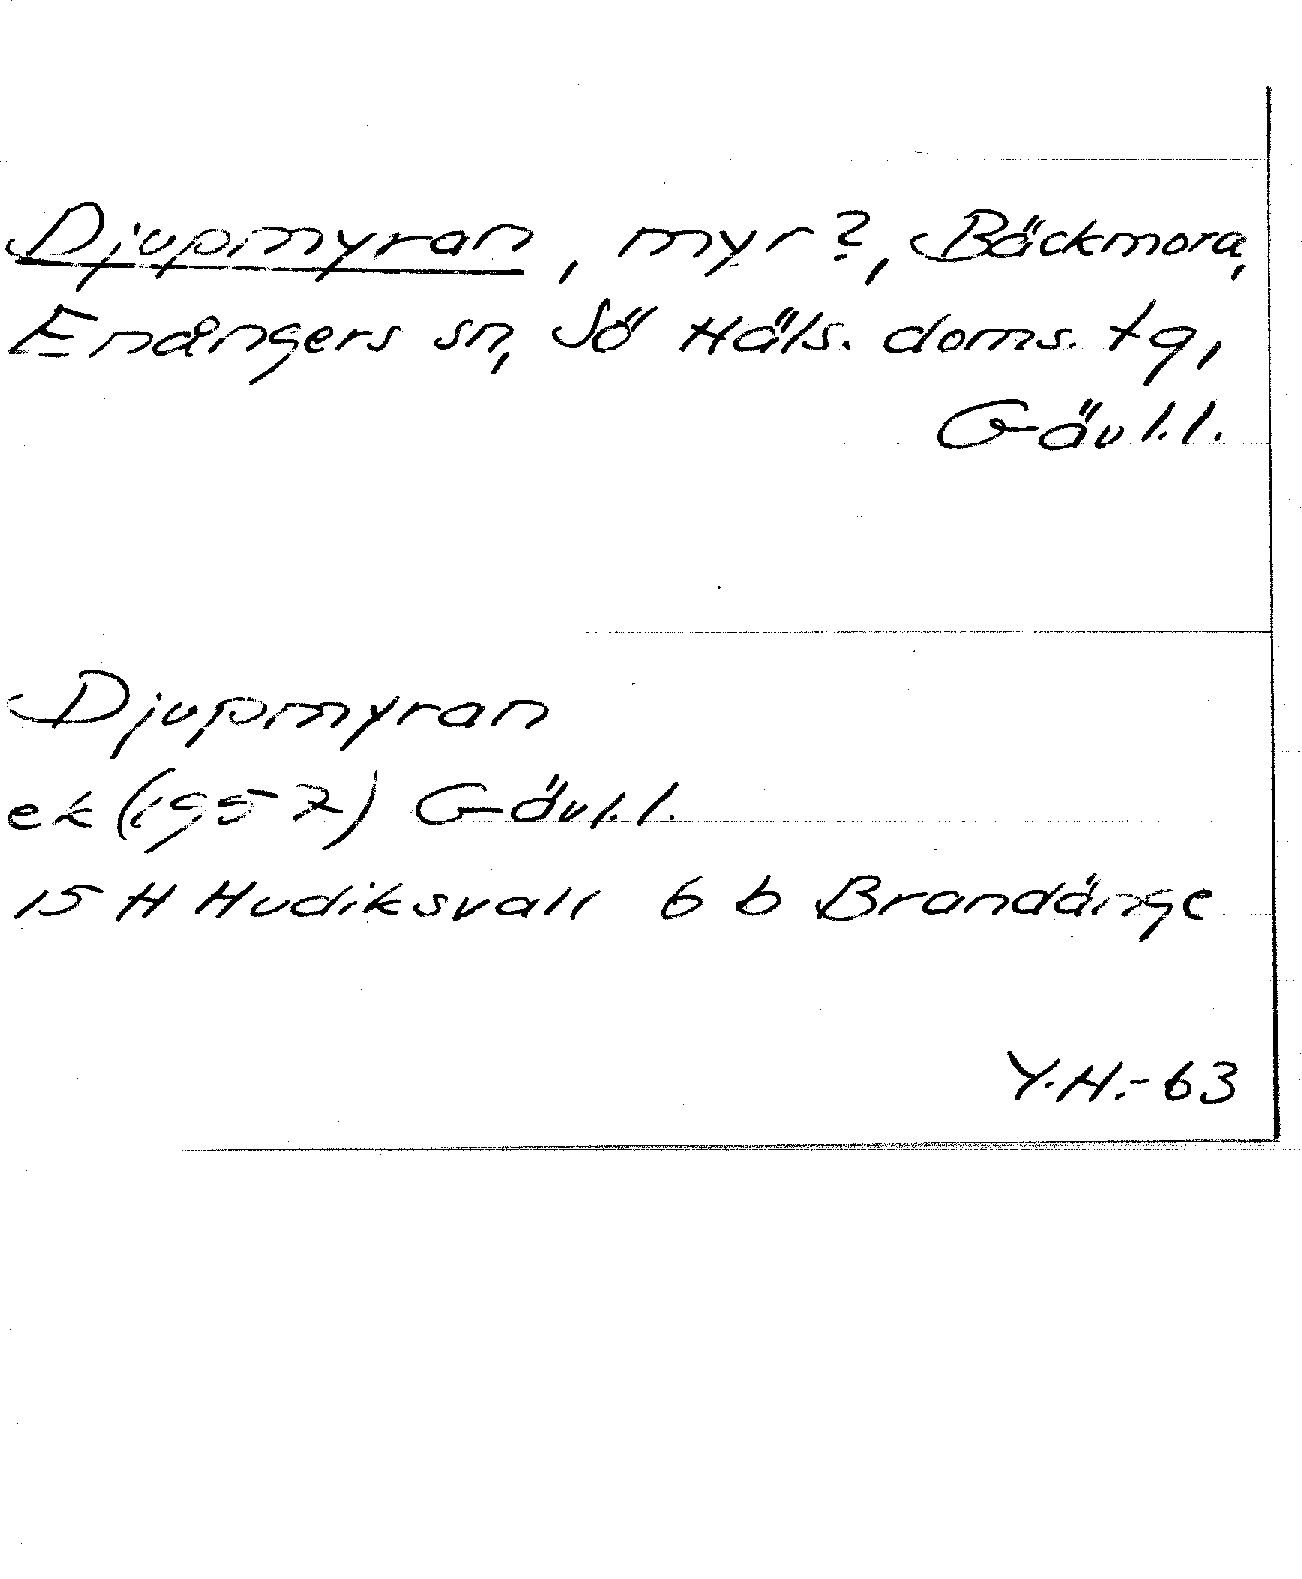 Djupmyran, myr?, Bäckmora,
Enångers sn, Sö Häls. doms. tg,
Gävl.l.
Djupmyran
ek (1957) Gävl.l.
15 H Hudiksvall 6 b Brandänge
Y.H.-63